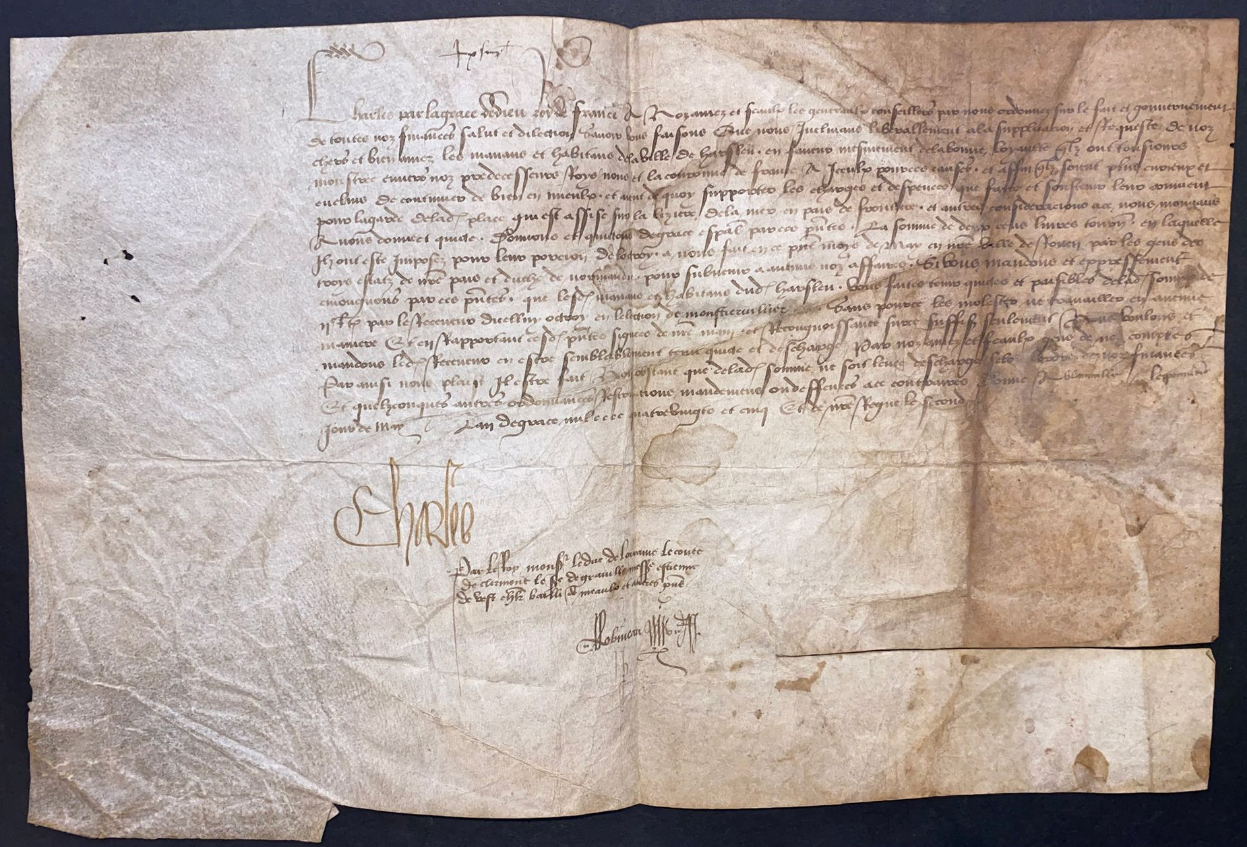 Charles par la grace de dieu roy de france A Noz amez et feaulx les generaulx conseillers par nous ordonnez sur le fait et gouvernement
de toutes noz finances salut et dilection Savoir vous faisons Que nous Inclinans liberallement a la supplication et Requeste de noz
chers et bien amez les manans et habitans de la ville de harfleu en faveur mesmement de la bonne loyaulte qilz ont tousiours
monstree envers noz predecesseurs Roys nous et la couronne de france A Iceulx pour ces causes et affin qilz soient plus enrieux et
enclins de continuer de bien en mieulx et aient de quoy supporter les charges et despences que faire et soustenir leur convient
pour la garde de lad place qui est assise sur la riziere de la mer en pais de frontiere et autres consideracions ace nous mouvans
Avons donne et quicte Donnons et quictons de grace espal par ces pntes La somme de deux cens livres tourn en laquelle
Ilz ont este Imposez pour leur porcion de lottroy a nous fait en ce pnt moys de May en nre ville de Rouen par les gens des
trois estatz de nre pais et duche de normandie pour subvenir a aucuns noz affaires Si vous mandons et expressement
enioignons par ces pntes que lesd manans et habitans dud harfleu vous faites tenir quictes et paisibles de lad somme de
IIc lt par le Receveur dicelluy octroy en lelection de monstierviller Sans pour ce les molester ne travailler en aucune
maniere Et en Rapportant cesd pntes signees de nre main et Recongnoissance sur ce suffist seulement Nous voulons et
mandons led Receveur en estre semblablement tenu quicte et descharge Par noz amez et feaulx gens de noz comptes
Car ainsi nous plaist Il estre fait Nonobstant que de lad somme ne soit leve descharge selon lordre de noz finances
Et quelzconques autres ordonnances Restrinctions mandemens ou deffences ace contraires Donne A
Jour de May Lan de grace mil cccc quatrevingts et cinq Et de nre Regne le second
Charles
Par le Roy monsr le duc de lorraine le conte
de clermont le sr de graville messe estienne
de vest chlr bailli de meaulx et autres pns
Robineau